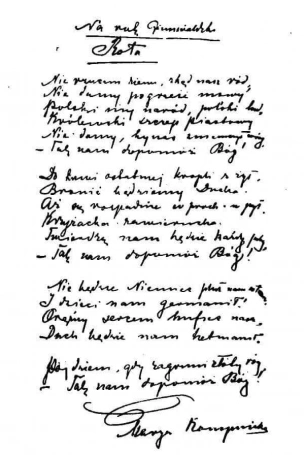 Na rok Grunwaldzki
Rota
Nie rzucim ziemi, skąd nasz ród,
Nie damy pogrześć mowy,
Polski my naród, polski lud,
Królewski szczep Piastowy
Nie damy, by nas
– Tak nam dopomóż Bóg!
Do krwi ostatniej kropli z żył
Bronić będziemy Ducha.
Aż się rozpadnie w proch i w pył
Krzyżacka zawierucha.
Twierdzą nam będzie każdy próg
– Tak nam dopomóż Bóg!
Nie będzie Niemiec pluł nam w twarz
I dzieci nam germanił.
Orężny hufiec nasz,
Duch będzie nam hetmanił.
Pójdziem, gdy zagrzmi złoty róg,
– Tak nam dopomóż Bóg!
Marya Konopnicka